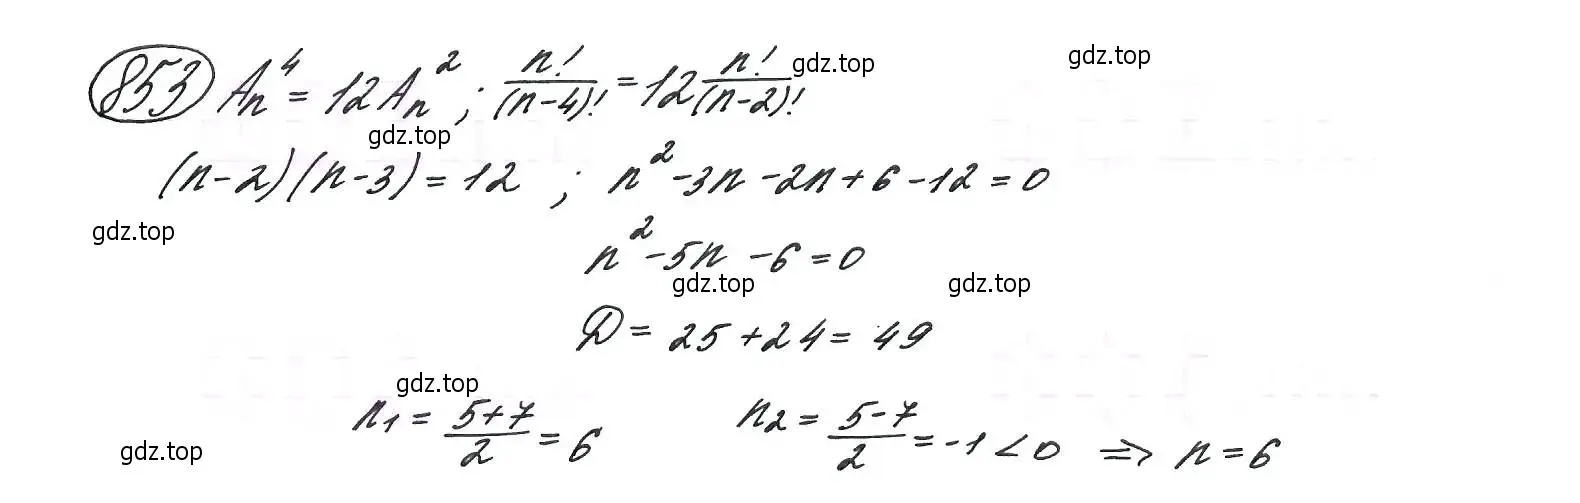 853 Aₙ⁴ = 12Aₙ² ; n!/(n-4)! = 12 n!/(n-2)! gdz.top gdz.top
gdz.top
(n-2)(n-3) = 12 ; n² - 3n - 2n + 6 - 12 = 0
gdz.top
n² - 5n - 6 = 0
gdz.top gdz.top
D = 25 + 24 = 49
gdz.top
n₁ = (5+7)/2 = 6 n₂ = (5-7)/2 = -1 < 0 ⇒ n = 6
gdz.top